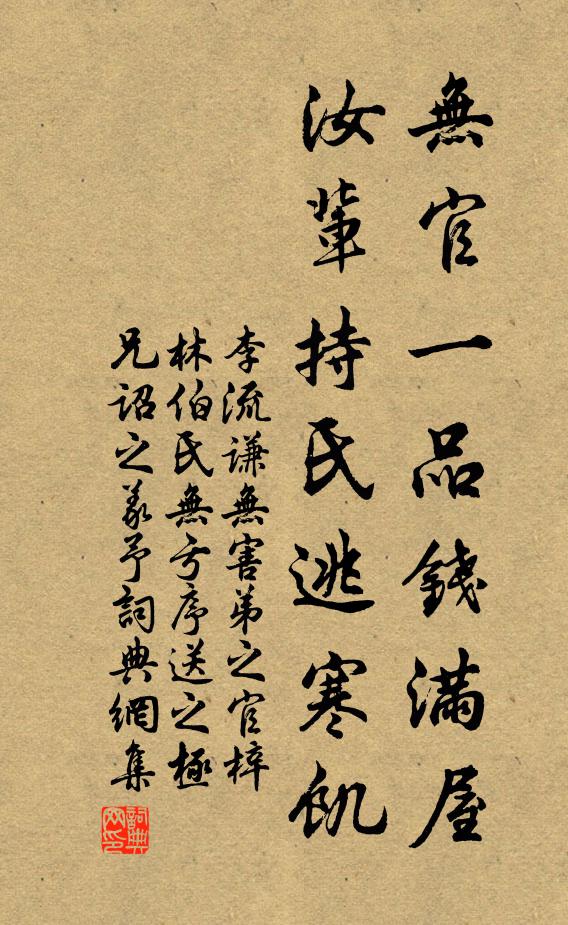 無官一品錢滿屋
汝輩持氏逃寒飢
李流謙無害弟之官梓
林伯氏無言序送之極
兄詔之義予詞典網集
詞典网印